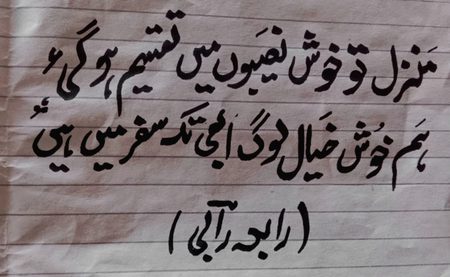 منزل تو خوش نصیبوں میں تقسیم ہوگئی
ہم خوش خیال لوگ ابھی تک سفر میں ہیں
(رابعہ رآبی)